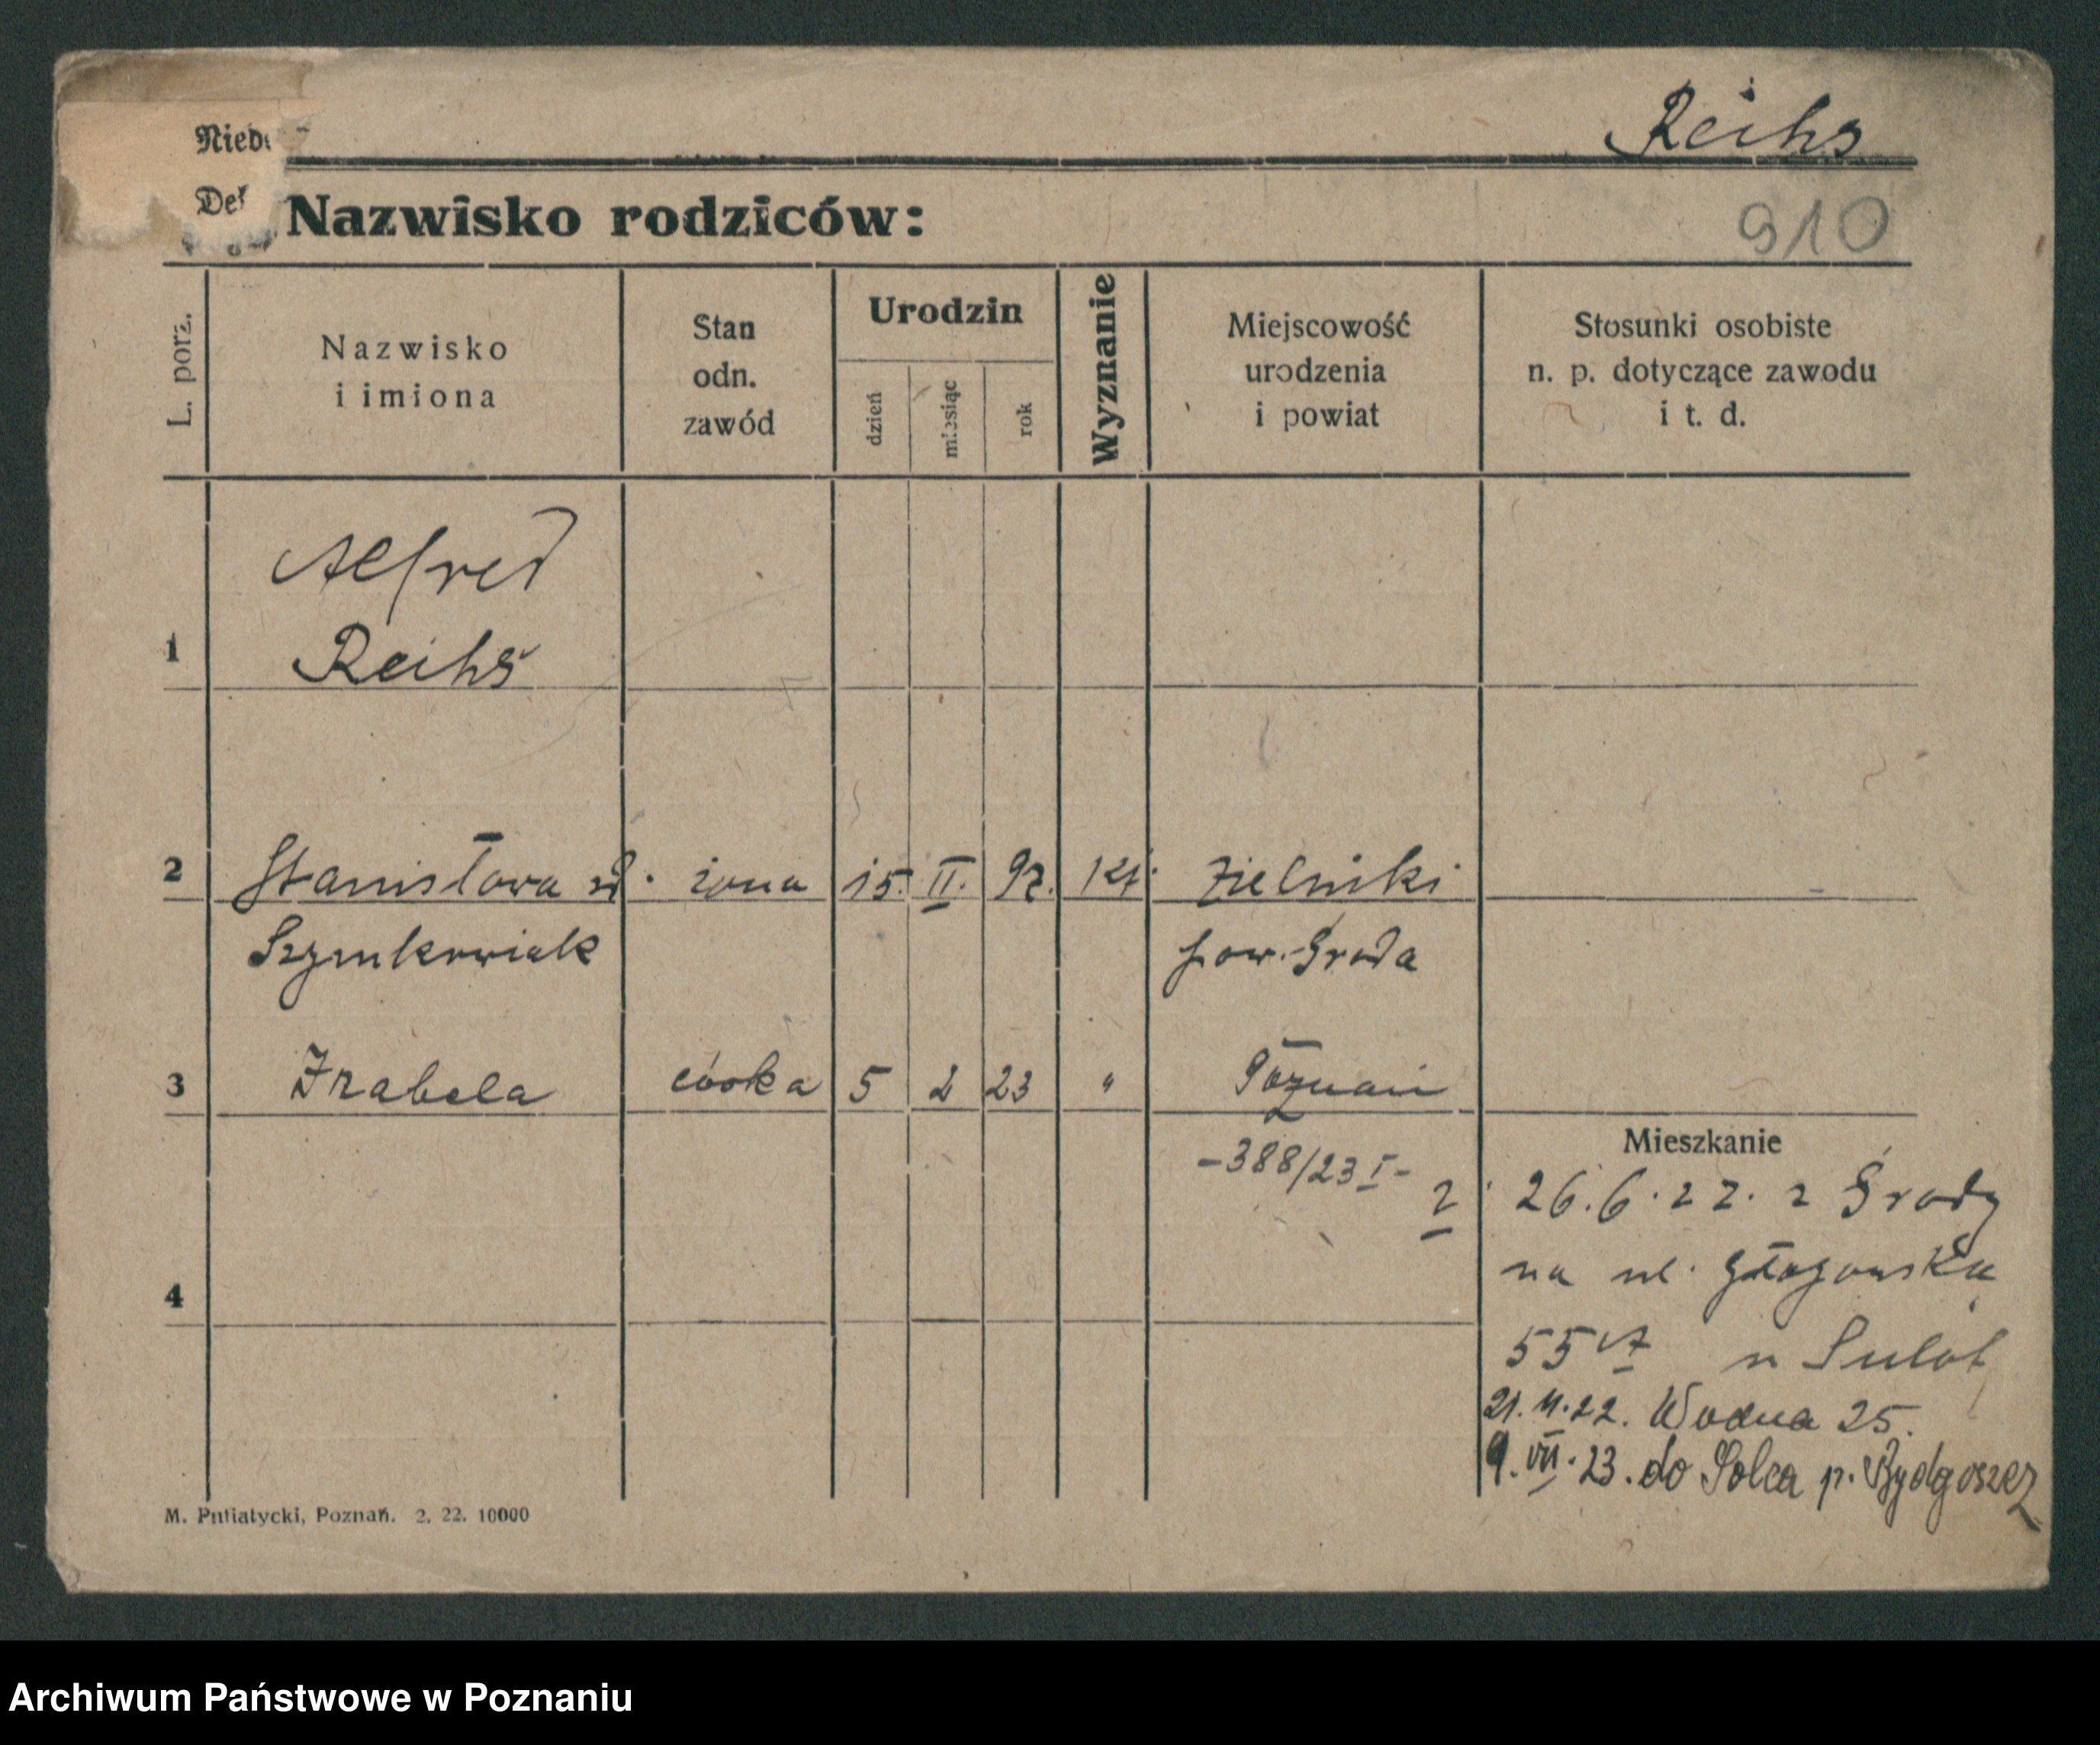 Reihs
Nazwisko rodziców:
910
L. porz.
Nazwisko
i imiona
Stan
odn.
zawód
Urodzin
dzień
miesiąc
rok
Wyznanie
Miejscowość
urodzenia
i powiat
Stosunki osobiste
n. p. dotyczące zawodu
i t. d.
1
Alfred
Reihs
2 Stanisława żona 15. II. 92. kt. Zielniki
Szymkowiak pow. Środa
3 Izabela córka 5 2 23 " Poznań
-388/23 I-
Mieszkanie
26.6.22. z Środy
na ul. Głogowska
55
21.11.22. Wodna 25.
9. VII. 23. do Solca p. Bydgoszcz
4
M. Putiatycki, Poznań. 2. 22. 10000
Archiwum Państwowe w Poznaniu